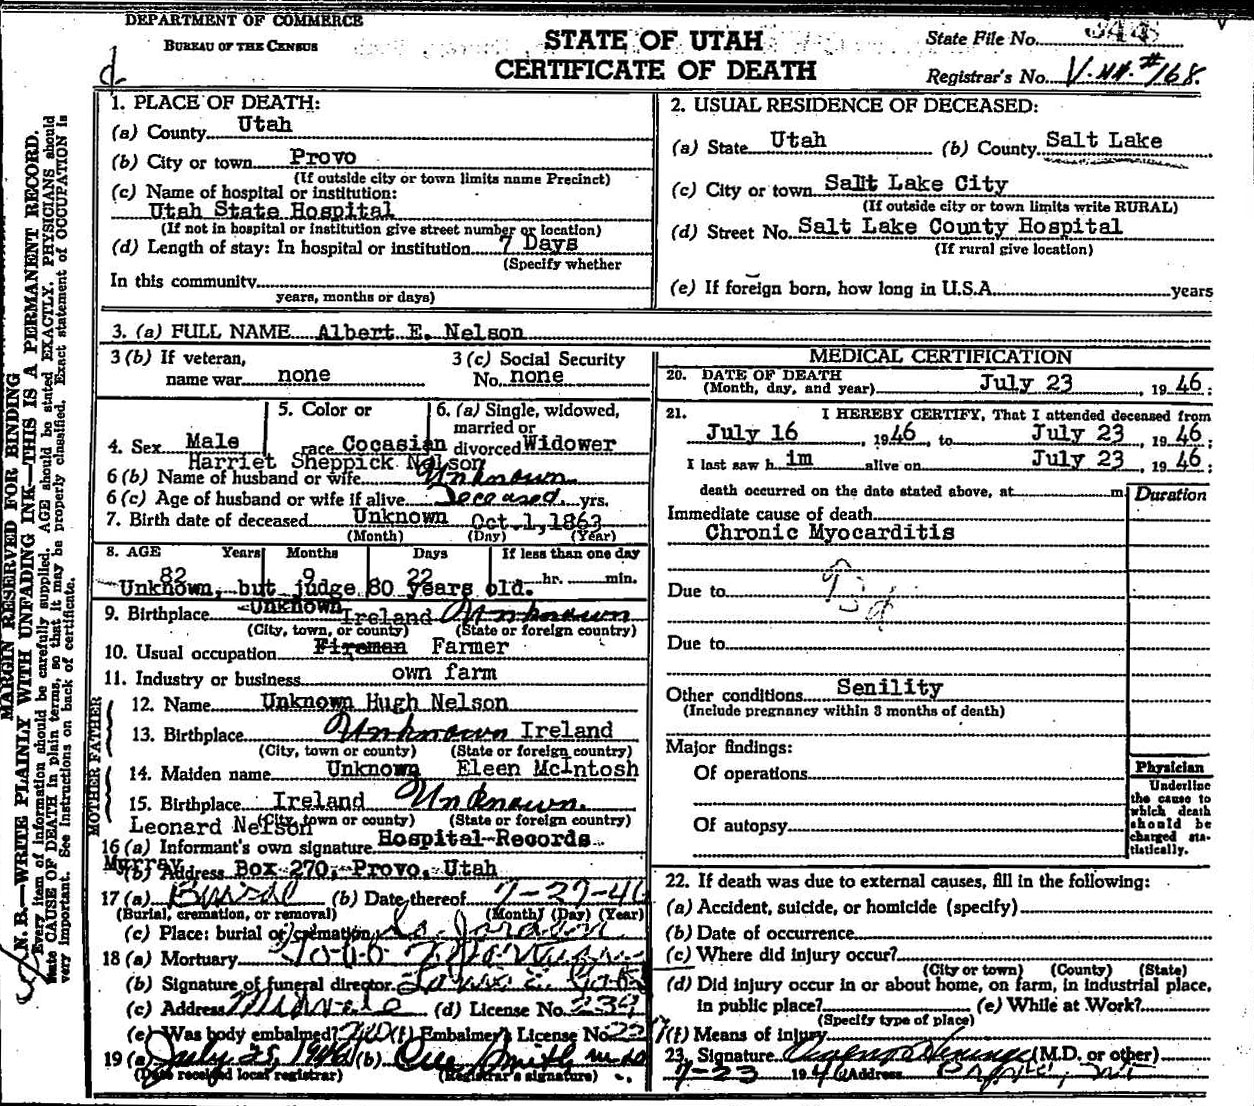 DEPARTMENT OF COMMERCE
BUREAU OF THE CENSUS
STATE OF UTAH
CERTIFICATE OF DEATH
State File No.
Registrar's No. #168.
MARGIN RESERVED FOR BINDING
N. B.—WRITE PLAINLY WITH UNFADING INK—THIS IS A PERMANENT RECORD.
Every item of information should be carefully supplied. AGE should be stated EXACTLY. PHYSICIANS should
state CAUSE OF DEATH in plain terms, so that it may be properly classified. Exact statement of OCCUPATION is
very important. See instructions on back of certificate.
1. PLACE OF DEATH:
(a) County Utah
(b) City or town Provo
(If outside city or town limits name Precinct)
(c) Name of hospital or institution:
Utah State Hospital
(If not in hospital or institution give street number or location)
(d) Length of stay: In hospital or institution 7 Days
(Specify whether
In this community
years, months or days)
2. USUAL RESIDENCE OF DECEASED:
(a) State Utah (b) County Salt Lake
(c) City or town Salt Lake City
(If outside city or town limits write RURAL)
(d) Street No. Salt Lake County Hospital
(If rural give location)
(e) If foreign born, how long in U.S.A. years
3. (a) FULL NAME Albert E. Nelson
3 (b) If veteran,
name war none
3 (c) Social Security
No. none
4. Sex Male
5. Color or
race Cocasian
6. (a) Single, widowed,
married or
divorced Widower
Harriet Sheppick Nelson
6 (b) Name of husband or wife Unknown
6 (c) Age of husband or wife if alive Deceased yrs.
7. Birth date of deceased Unknown Oct. 1, 1863
(Month) (Day) (Year)
8. AGE Years Months Days If less than one day
82 9 22 hr. min.
Unknown, but judge 80 years old.
9. Birthplace Unknown Ireland Unknown
(City, town, or county) (State or foreign country)
10. Usual occupation Fireman Farmer
11. Industry or business own farm
FATHER
12. Name Unknown Hugh Nelson
13. Birthplace Unknown Ireland
(City, town or county) (State or foreign country)
MOTHER
14. Maiden name Unknown Eleen McIntosh
15. Birthplace Ireland Unknown
(City, town or county) (State or foreign country)
Leonard Nelson
16 (a) Informant's own signature Hospital Records
Murray
(b) Address Box 270, Provo, Utah
17 (a) Burial (b) Date thereof 7-27-46
(Burial, cremation, or removal) (Month) (Day) (Year)
(c) Place: burial or cremation So. Jordan
18 (a) Mortuary
(b) Signature of funeral director
(c) Address Midvale (d) License No. 234
(e) Was body embalmed? (f) Embalmer's License No.
19 (a) July 25, 1946 (b) Smith
(Date received local registrar) (Registrar's signature)
MEDICAL CERTIFICATION
20. DATE OF DEATH
(Month, day, and year) July 23, 1946;
21. I HEREBY CERTIFY, That I attended deceased from
July 16, 1946, to July 23, 1946;
I last saw him alive on July 23, 1946;
death occurred on the date stated above, at m
Duration
Immediate cause of death
Chronic Myocarditis
Due to
Due to
Other conditions Senility
(Include pregnancy within 3 months of death)
Major findings:
Of operations
Of autopsy
Physician
Underline
the cause to
which death
should be
charged sta-
tistically.
22. If death was due to external causes, fill in the following:
(a) Accident, suicide, or homicide (specify)
(b) Date of occurrence
(c) Where did injury occur?
(City or town) (County) (State)
(d) Did injury occur in or about home, on farm, in industrial place,
in public place? (e) While at Work?
(Specify type of place)
(f) Means of injury
23. Signature (M.D. or other)
7-23 1946 Address